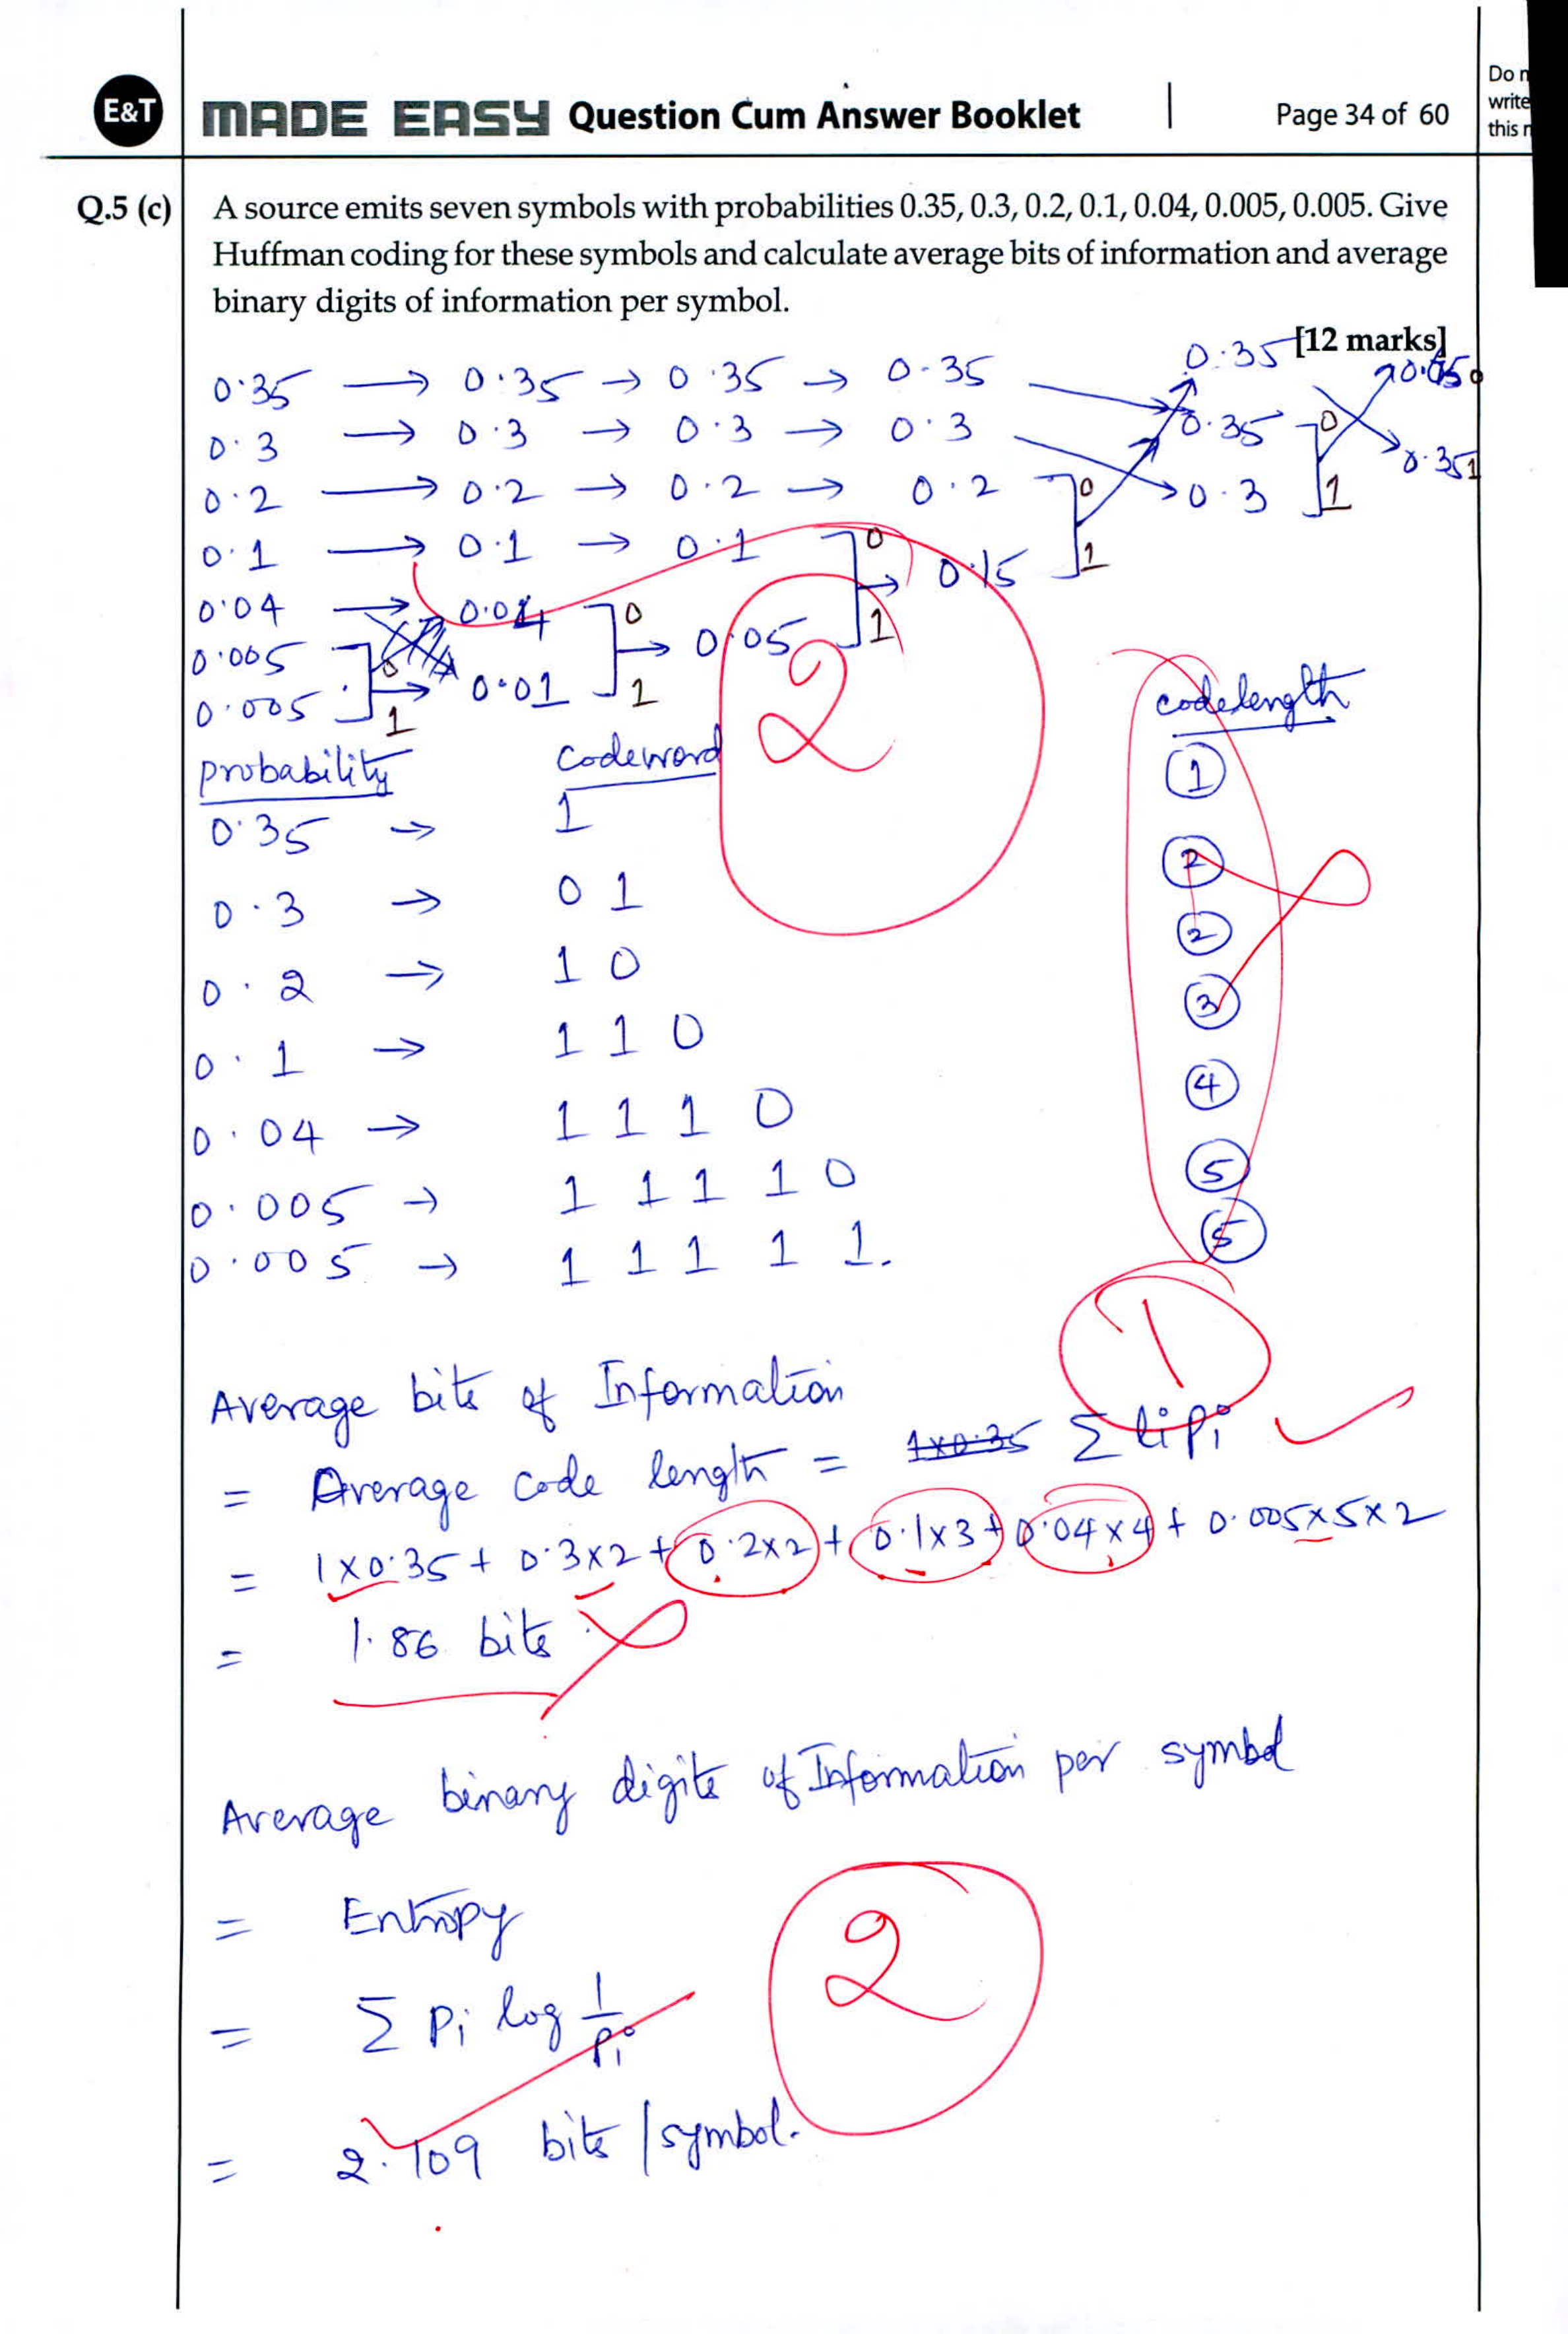 E&T
MADE EASY Question Cum Answer Booklet | Page 34 of 60
Do n
write
this n
Q.5 (c) A source emits seven symbols with probabilities 0.35, 0.3, 0.2, 0.1, 0.04, 0.005, 0.005. Give
Huffman coding for these symbols and calculate average bits of information and average
binary digits of information per symbol.
[12 marks]
0.35 → 0.35 → 0.35 → 0.35 0.35
0.3 → 0.3 → 0.3 → 0.3 0.35 0 0.351
0.2 → 0.2 → 0.2 → 0.2 0 0.3 1
0.1 → 0.1 → 0.1 0 → 0.15 1
0.04 → 0.04 0 → 0.05 1
0.005 0 → 0.01 1
0.005 1
2
probability codeword codelength
0.35 → 1 1
0.3 → 0 1 2
0.2 → 1 0 2
0.1 → 1 1 0 3
0.04 → 1 1 1 0 4
0.005 → 1 1 1 1 0 5
0.005 → 1 1 1 1 1. 5
1
Average bits of Information
= Average code length = 1×0.35 Σ li pi
= 1×0.35 + 0.3×2 + 0.2×2 + 0.1×3 + 0.04×4 + 0.005×5×2
= 1.86 bits
Average binary digits of Information per symbol
= Entropy
2
= Σ Pi log 1/Pi
= 2.109 bits/symbol.